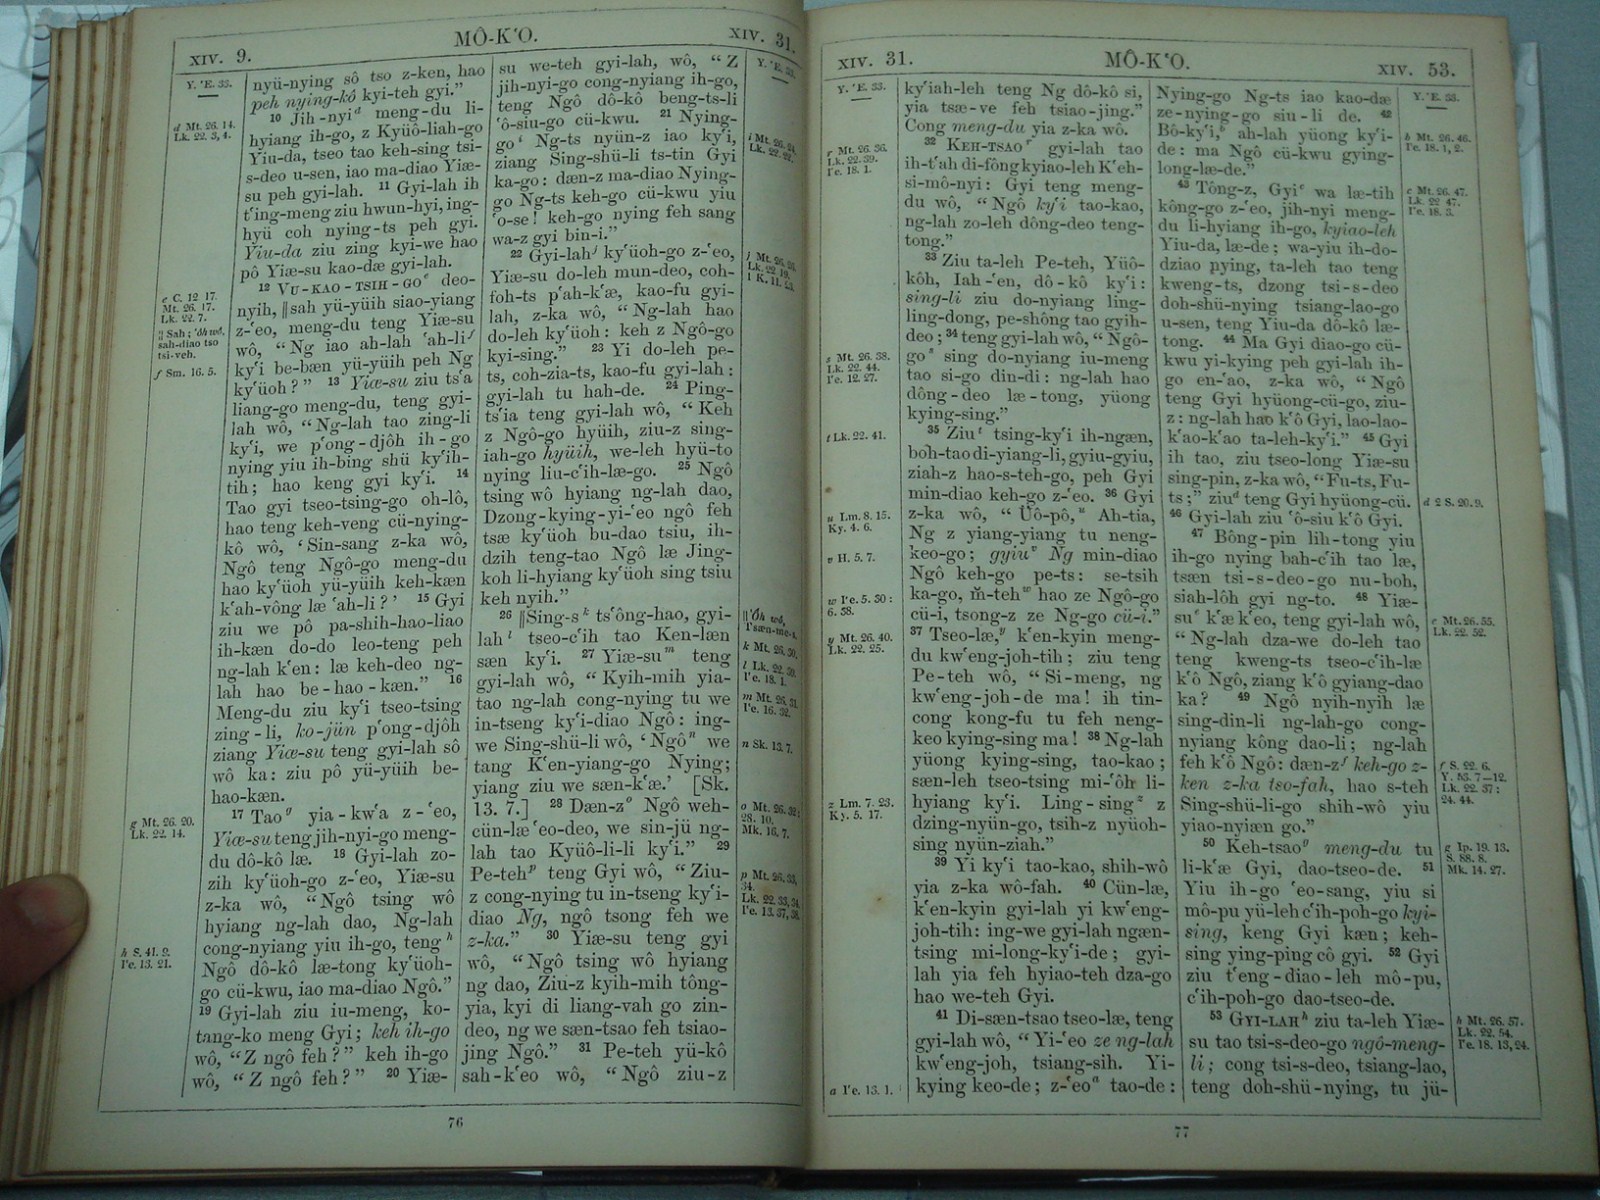 XIV. 9.
MÔ-K‘O.
XIV. 31.
Y. ‘E. 33.
d Mt. 26. 14.
Lk. 22. 3, 4.
e C. 12 17.
Mt. 26. 17.
Lk. 22. 7.
|| Sah; ‘ôh wô,
sah-diao tso
tsi-veh.
f Sm. 16. 5.
g Mt. 26. 20.
Lk. 22. 14.
h S. 41. 9.
I‘e. 13. 21.
nyü-nying sô tso z-ken, hao
peh nying-kô kyi-teh gyi.”
10 Jih-nyi d meng-du li-
hyiang ih-go, z Kyüô-liah-go
Yiu-da, tseo tao keh-sing tsi-
s-deo u-sen, iao ma-diao Yiæ-
su peh gyi-lah. 11 Gyi-lah ih
t‘ing-meng ziu hwun-hyi, ing-
hyü coh nying-ts peh gyi.
Yiu-da ziu zing kyi-we hao
pô Yiæ-su kao-dæ gyi-lah.
12 VU-KAO-TSIH-GO e deo-
nyih, ||sah yü-yüih siao-yiang
z-‘eo, meng-du teng Yiæ-su
wô, “Ng iao ah-lah ‘ah-li f
ky‘i be-bæn yü-yüih peh Ng
ky‘üoh?” 13 Yiæ-su ziu ts‘a
liang-go meng-du, teng gyi-
lah wô, “Ng-lah tao zing-li
ky‘i, we p‘ong-djôh ih-go
nying yiu ih-bing shü ky‘ih-
tih; hao keng gyi ky‘i. 14
Tao gyi tseo-tsing-go oh-lô,
hao teng keh-veng cü-nying-
kô wô, ‘Sin-sang z-ka wô,
Ngô teng Ngô-go meng-du
hao ky‘üoh yü-yüih keh-kæn
k‘ah-vông læ ‘ah-li?’ 15 Gyi
ziu we pô pa-shih-hao-liao
ih-kæn do-do leo-teng peh
ng-lah k‘en: læ keh-deo ng-
lah hao be-hao-kæn.” 16
Meng-du ziu ky‘i tseo-tsing
zing-li, ko-jün p‘ong-djôh
ziang Yiæ-su teng gyi-lah sô
wô ka: ziu pô yü-yüih be-
hao-kæn.
17 Tao g yia-kw‘a z-‘eo,
Yiæ-su teng jih-nyi-go meng-
du dô-kô læ. 18 Gyi-lah zo-
zih ky‘üoh-go z-‘eo, Yiæ-su
z-ka wô, “Ngô tsing wô
hyiang ng-lah dao, Ng-lah
cong-nyiang yiu ih-go, teng h
Ngô dô-kô læ-tong ky‘üoh-
go cü-kwu, iao ma-diao Ngô.”
19 Gyi-lah ziu iu-meng, ko-
tang-ko meng Gyi; keh ih-go
wô, “Z ngô feh?” keh ih-go
wô, “Z ngô feh?” 20 Yiæ-
su we-teh gyi-lah, wô, “Z
jih-nyi-go cong-nyiang ih-go,
teng Ngô dô-kô beng-ts-li
‘ô-siu-go cü-kwu. 21 Nying-
go i Ng-ts nyün-z iao ky‘i,
ziang Sing-shü-li ts-tin Gyi
ka-go: dæn-z ma-diao Nying-
go Ng-ts keh-go cü-kwu yiu
‘o-se! keh-go nying feh sang
wa-z gyi bin-i.”
22 Gyi-lah j ky‘üoh-go z-‘eo,
Yiæ-su do-leh mun-deo, coh-
foh-ts p‘ah-k‘æ, kao-fu gyi-
lah, z-ka wô, “Ng-lah hao
do-leh ky‘üoh: keh z Ngô-go
kyi-sing.” 23 Yi do-leh pe-
ts, coh-zia-ts, kao-fu gyi-lah:
gyi-lah tu hah-de. 24 Ping-
ts‘ia teng gyi-lah wô, “Keh
z Ngô-go hyüih, ziu-z sing-
iah-go hyüih, we-leh hyü-to
nying liu-c‘ih-læ-go. 25 Ngô
tsing wô hyiang ng-lah dao,
Dzong-kying-yi-‘eo ngô feh
tsæ ky‘üoh bu-dao tsiu, ih-
dzih teng-tao Ngô læ Jing-
koh li-hyiang ky‘üoh sing tsiu
keh nyih.”
26 ||Sing-s k ts‘ông-hao, gyi-
lah l tseo-c‘ih tao Ken-læn
sæn ky‘i. 27 Yiæ-su m teng
gyi-lah wô, “Kyih-mih yia-
tao ng-lah cong-nying tu we
in-tseng ky‘i-diao Ngô: ing-
we Sing-shü-li wô, ‘Ngô n we
tang K‘en-yiang-go Nying;
yiang ziu we sæn-k‘æ.’ [Sk.
13. 7.] 28 Dæn-z o Ngô weh-
cün-læ ‘eo-deo, we sin-jü ng-
lah tao Kyüô-li-li ky‘i.” 29
Pe-teh p teng Gyi wô, “Ziu-
z cong-nying tu in-tseng ky‘i-
diao Ng, ngô tsong feh we
z-ka.” 30 Yiæ-su teng gyi
wô, “Ngô tsing wô hyiang
ng dao, Ziu-z kyih-mih tông-
yia, kyi di liang-vah go zin-
deo, ng we sæn-tsao feh tsiao-
jing Ngô.” 31 Pe-teh yü-kô
sah-k‘eo wô, “Ngô ziu-z
|| ‘Ôh wô,
k Mt. 26. 30.
l Lk. 22. 39.
I‘e. 18. 1.
m Mt. 26. 31.
I‘e. 16. 32.
n Sk. 13. 7.
o Mt. 26. 32:
28. 10.
Mk. 16. 7.
p Mt. 26. 33,
34.
Lk. 22. 33, 34.
I‘e. 13. 37, 38.
76
XIV. 31.
MÔ-K‘O.
XIV. 53.
Y. ‘E. 33.
r Mt. 26. 36.
Lk. 22. 39.
I‘e. 18. 1.
s Mt. 26. 38.
Lk. 22. 44.
I‘e. 12. 27.
t Lk. 22. 41.
u Lm. 8. 15.
Ky. 4. 6.
v H. 5. 7.
w I‘e. 5. 30:
6. 38.
y Mt. 26. 40.
Lk. 22. 25.
z Lm. 7. 23.
Ky. 5. 17.
a I‘e. 13. 1.
ky‘iah-leh teng Ng dô-kô si,
yia tsæ-ve feh tsiao-jing.”
Cong meng-du yia z-ka wô.
32 KEH-TSAO r gyi-lah tao
ih-t‘ah di-fông kyiao-leh K‘eh-
si-mô-nyi: Gyi teng meng-
du wô, “Ngô ky‘i tao-kao,
ng-lah zo-leh dông-deo teng-
tong.”
33 Ziu ta-leh Pe-teh, Yüô-
kôh, Iah-‘en, dô-kô ky‘i:
sing-li ziu do-nyiang ling-
ling-dong, pe-shông tao gyih-
deo; 34 teng gyi-lah wô, “Ngô-
go s sing do-nyiang iu-meng
tao si-go din-di: ng-lah hao
dông-deo læ-tong, yüong
kying-sing.”
35 Ziu t tsing-ky‘i ih-ngæn,
boh-tao di-yiang-li, gyiu-gyiu,
ziah-z hao-s-teh-go, peh Gyi
min-diao keh-go z-‘eo. 36 Gyi
z-ka wô, “Üô-pô, u Ah-tia,
Ng z yiang-yiang tu neng-
keo-go; gyiu v Ng min-diao
Ngô keh-go pe-ts: se-tsih
ka-go, m̄-teh w hao ze Ngô-go
cü-i, tsong-z ze Ng-go cü-i.”
37 Tseo-læ, y k‘en-kyin meng-
du kw‘eng-joh-tih; ziu teng
Pe-teh wô, “Si-meng, ng
kw‘eng-joh-de ma! ih tin-
cong kong-fu tu feh neng-
keo kying-sing ma! 38 Ng-lah
yüong kying-sing, tao-kao;
sæn-leh tseo-tsing mi-‘ôh li-
hyiang ky‘i. Ling-sing z z
dzing-nyün-go, tsih-z nyüoh-
sing nyün-ziah.”
39 Yi ky‘i tao-kao, shih-wô
yia z-ka wô-fah. 40 Cün-læ,
k‘en-kyin gyi-lah yi kw‘eng-
joh-tih: ing-we gyi-lah ngæn-
tsing mi-long-ky‘i-de; gyi-
lah yia feh hyiao-teh dza-go
hao we-teh Gyi.
41 Di-sæn-tsao tseo-læ, teng
gyi-lah wô, “Yi-‘eo ze ng-lah
kw‘eng-joh, tsiang-sih. Yi-
kying keo-de; z-‘eo a tao-de:
Nying-go Ng-ts iao kao-dæ
ze-nying-go siu-li de. 42
Bô-ky‘i, b ah-lah yüong ky‘i-
de: ma Ngô cü-kwu gying-
long-læ-de.”
43 Tông-z, Gyi c wa læ-tih
kông-go z-‘eo, jih-nyi meng-
du li-hyiang ih-go, kyiao-leh
Yiu-da, læ-de; wa-yiu ih-do-
dziao nying, ta-leh tao teng
kweng-ts, dzong tsi-s-deo
doh-shü-nying tsiang-lao-go
u-sen, teng Yiu-da dô-kô læ-
tong. 44 Ma Gyi diao-go cü-
kwu yi-kying peh gyi-lah ih-
go en-‘ao, z-ka wô, “Ngô
teng Gyi hyüong-cü-go, ziu-
z: ng-lah hao k‘ô Gyi, lao-lao-
k‘ao-k‘ao ta-leh-ky‘i.” 45 Gyi
ih tao, ziu tseo-long Yiæ-su
sing-pin, z-ka wô, “Fu-ts, Fu-
ts;” ziu d teng Gyi hyüong-cü.
46 Gyi-lah ziu ‘ô-siu k‘ô Gyi.
47 Bông-pin lih-tong yiu
ih-go nying bah-c‘ih tao læ,
tsæn tsi-s-deo-go nu-boh,
siah-lôh gyi ng-to. 48 Yiæ-
su e k‘æ k‘eo, teng gyi-lah wô,
“Ng-lah dza-we do-leh tao
teng kweng-ts tseo-c‘ih-læ
k‘ô Ngô, ziang k‘ô gyiang-dao
ka? 49 Ngô nyih-nyih læ
sing-din-li ng-lah-go cong-
nyiang kông dao-li; ng-lah
feh k‘ô Ngô: dæn-z f keh-go z-
ken z-ka tso-fah, hao s-teh
Sing-shü-li-go shih-wô yiu
yiao-nyiæn go.”
50 Keh-tsao g meng-du tu
li-k‘æ Gyi, dao-tseo-de. 51
Yiu ih-go ‘eo-sang, yiu si
mô-pu yü-leh c‘ih-poh-go kyi-
sing, keng Gyi kæn; keh-
sing ying-ping cô gyi. 52 Gyi
ziu t‘eng-diao-leh mô-pu,
c‘ih-poh-go dao-tseo-de.
53 GYI-LAH h ziu ta-leh Yiæ-
su tao tsi-s-deo-go ngô-meng-
li; cong tsi-s-deo, tsiang-lao,
teng doh-shü-nying, tu jü-
Y. ‘E. 33.
b Mt. 26. 46.
I‘e. 18. 1, 2.
c Mt. 26. 47.
Lk. 22 47.
I‘e. 18. 3.
d 2 S. 20. 9.
e Mt. 26. 55.
Lk. 22. 52.
f S. 22. 6.
Y. 53. 7—12.
Lk. 22. 37:
24. 44.
g Ip. 19. 13.
S. 88. 8.
Mk. 14. 27.
h Mt. 26. 57.
Lk. 22. 54.
I‘e. 18. 13, 24.
77